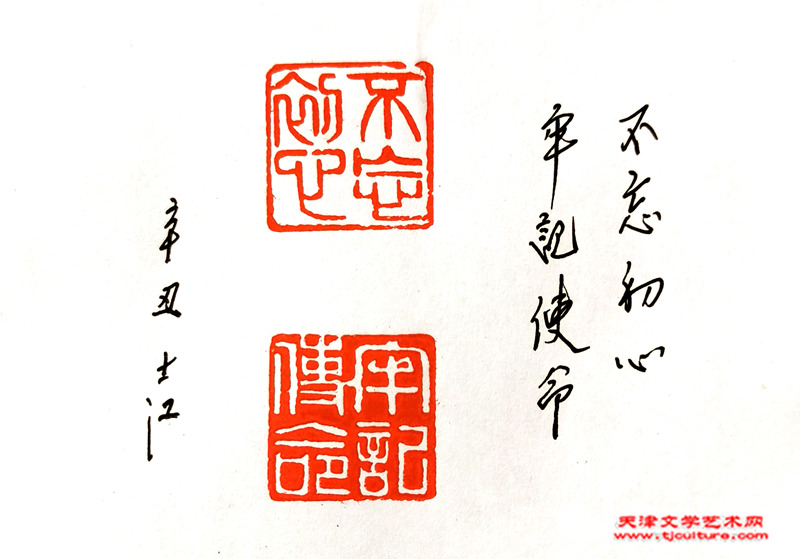 不忘初心
牢记使命
不忘初心
牢記使命
辛丑 士江
天津文学艺术网
www.tjculture.com